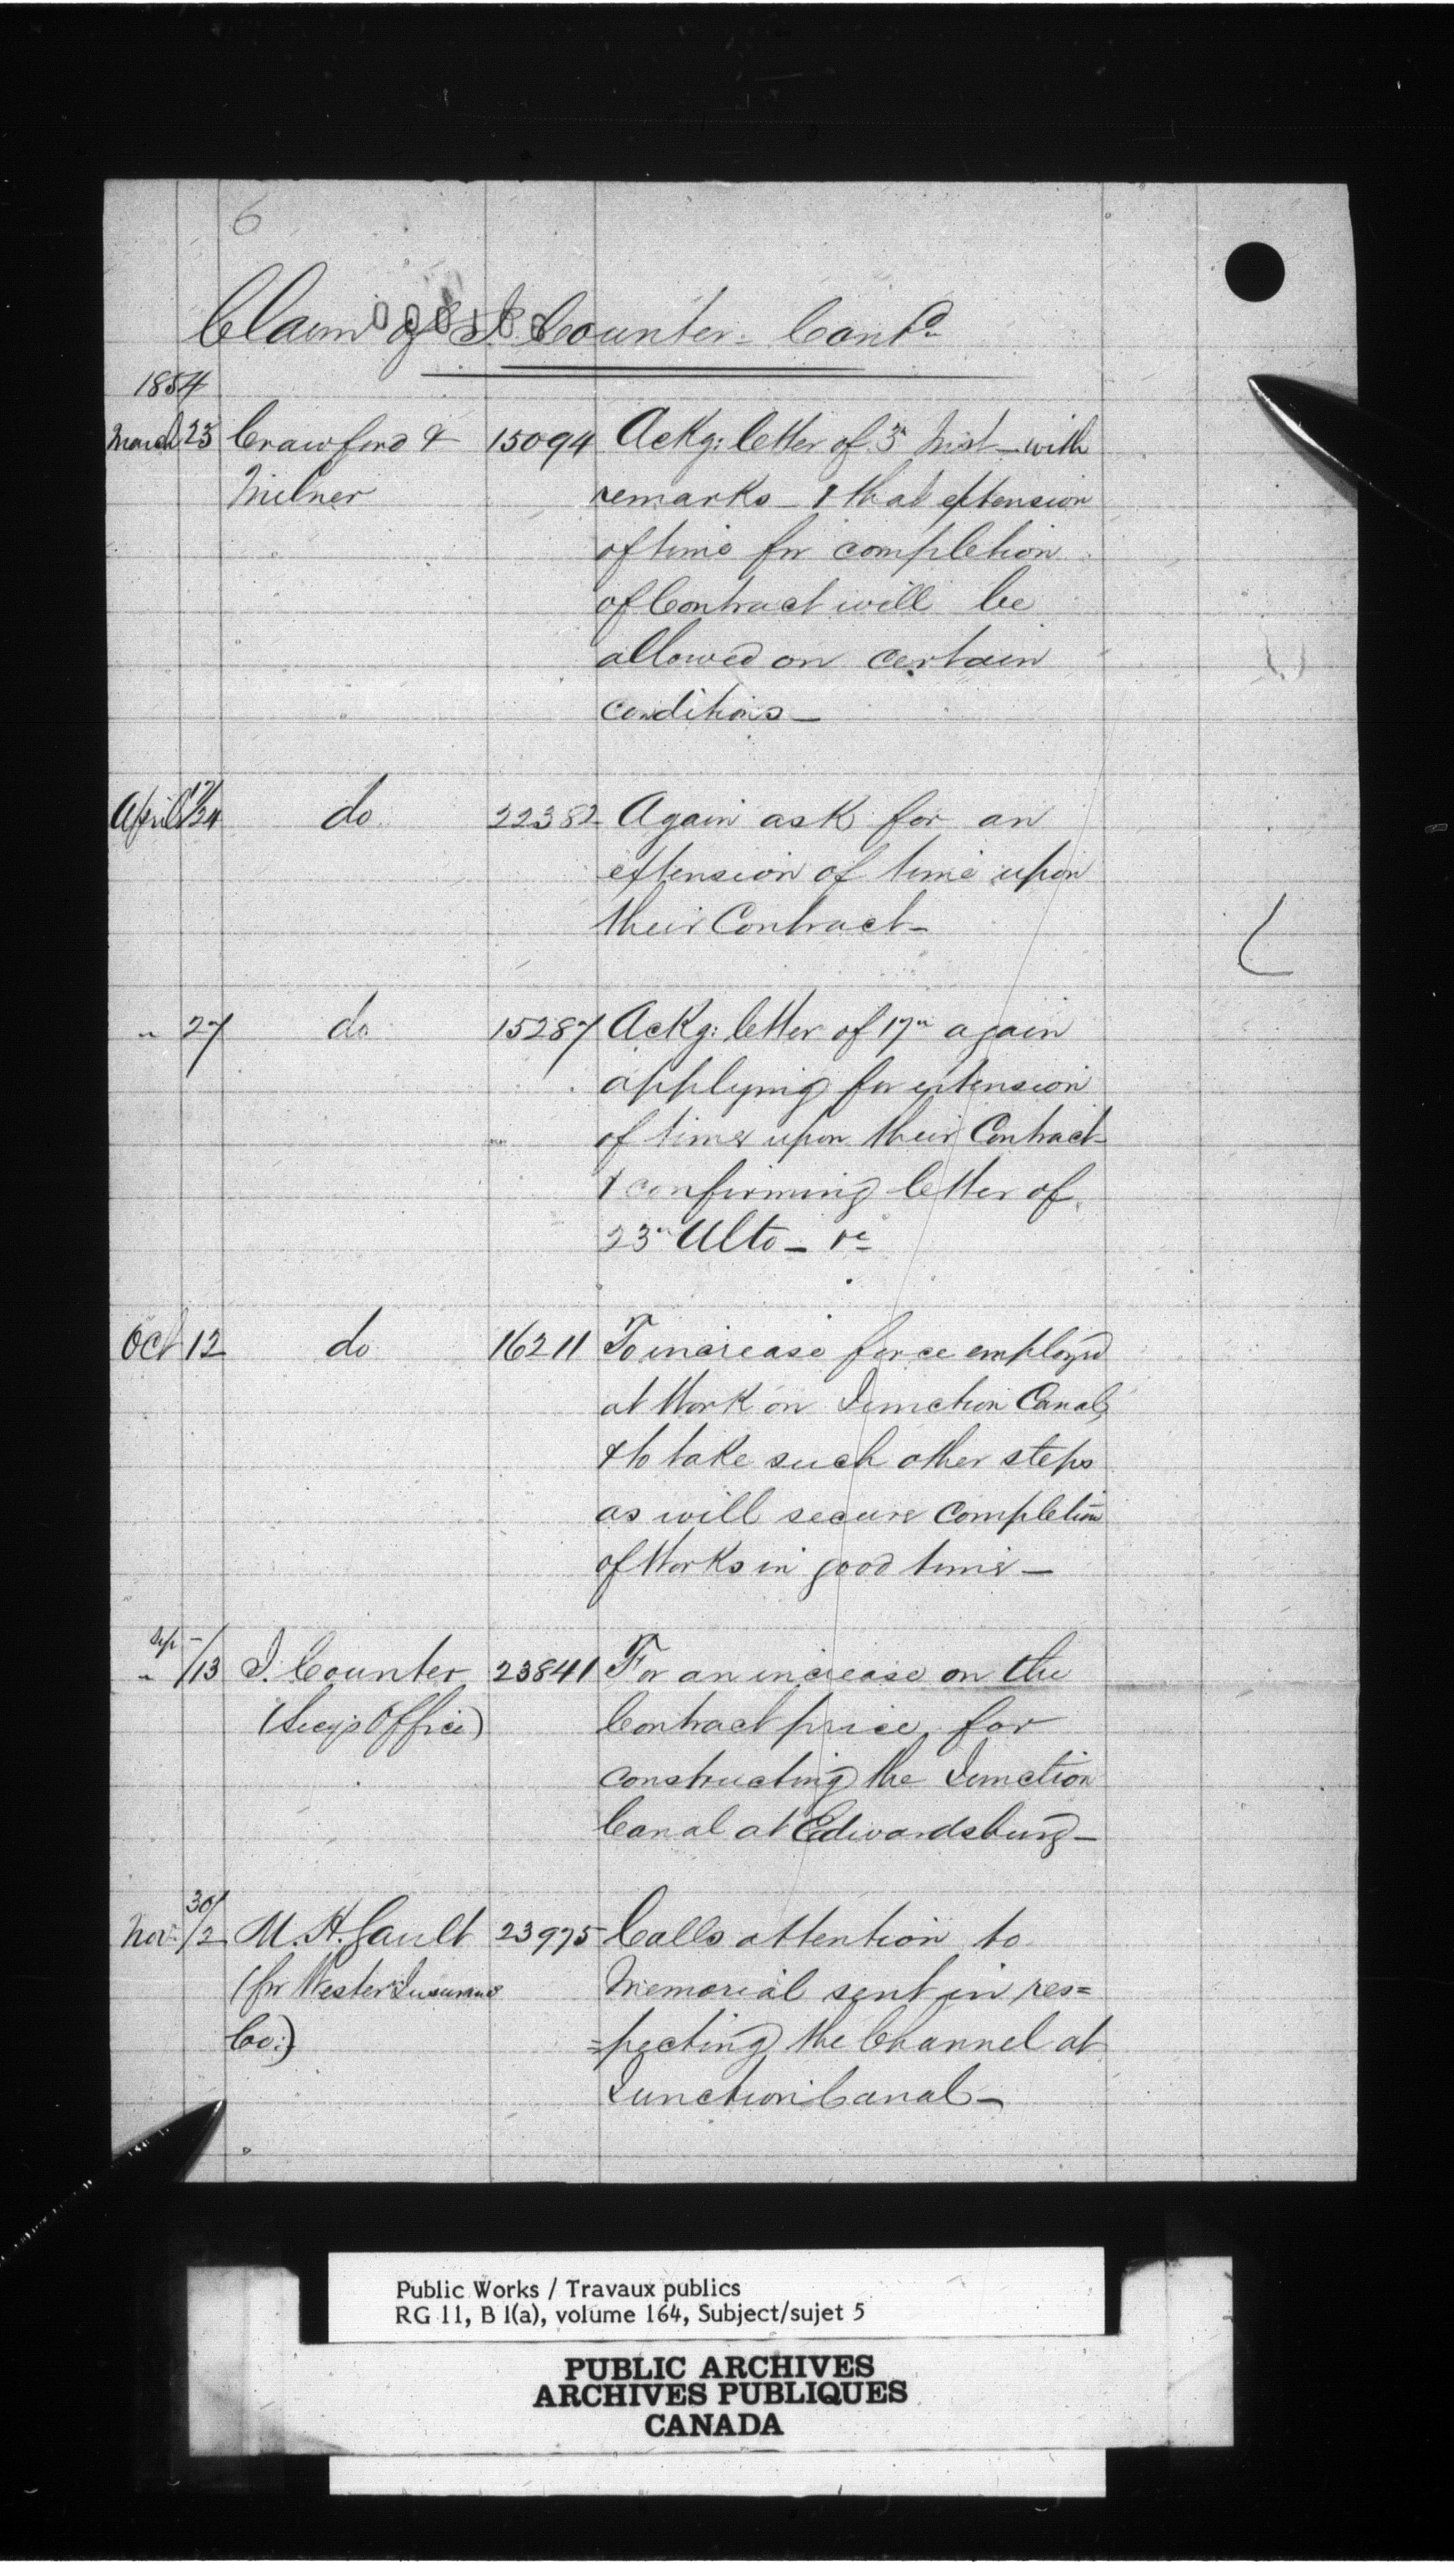 6
Claim of J. Counter - Contd
1854
March 23 Crawford & 15094 Ackg: letter of 3d Inst - with
Milner remarks - & that extension
of time for completion
of Contract will be
allowed on certain
conditions -
April 17/24 do 22382 Again ask for an
extension of time upon
their Contract -
" 27 do 15287 Ackg: letter of 17th again
applying for extension
of time upon their Contract
& confirming letter of
23d Ulto - &c
Oct 12 do 16211 To increase force employed
at Work on Junction Canal,
& to take such other steps
as will secure completion
of Works in good time -
Sep -
" /13 J. Counter 23841 For an increase on the
(Secy's Office) Contract price for
constructing the Junction
Canal at Edwardsburg -
30/
Nov: /2 M. H. Gault 23975 Calls attention to
(for Wester Insurance Memorial sent in res=
Co:) =pecting the Channel at
Junction Canal -
Public Works / Travaux publics
RG 11, B 1(a), volume 164, Subject/sujet 5
PUBLIC ARCHIVES
ARCHIVES PUBLIQUES
CANADA